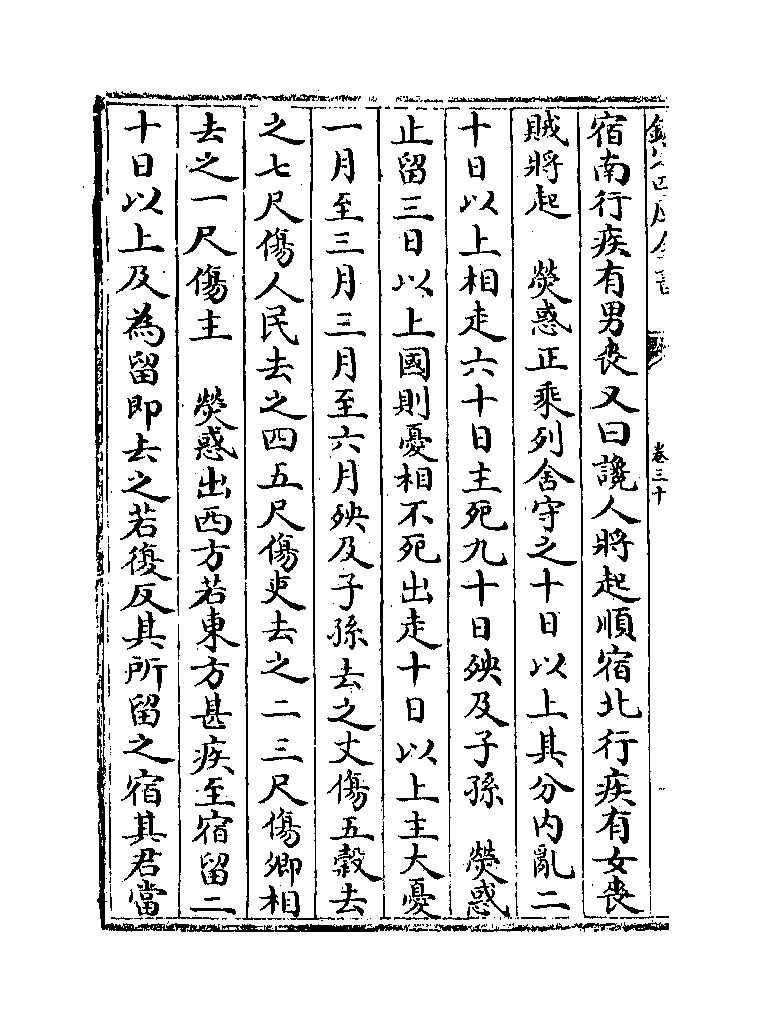 欽定四庫全書
卷三十
宿南行疾有男喪又曰讒人將起順宿北行疾有女喪
賊將起　熒惑正乘列舍守之十日以上其分内亂二
十日以上相走六十日主死九十日殃及子孫　熒惑
止留三日以上國則憂相不死出走十日以上主大憂
一月至三月三月至六月殃及子孫去之丈傷五穀去
之七尺傷人民去之四五尺傷吏去之二三尺傷卿相
去之一尺傷主　熒惑出西方若東方甚疾至宿留二
十日以上及為留即去之若復反其所留之宿其君當